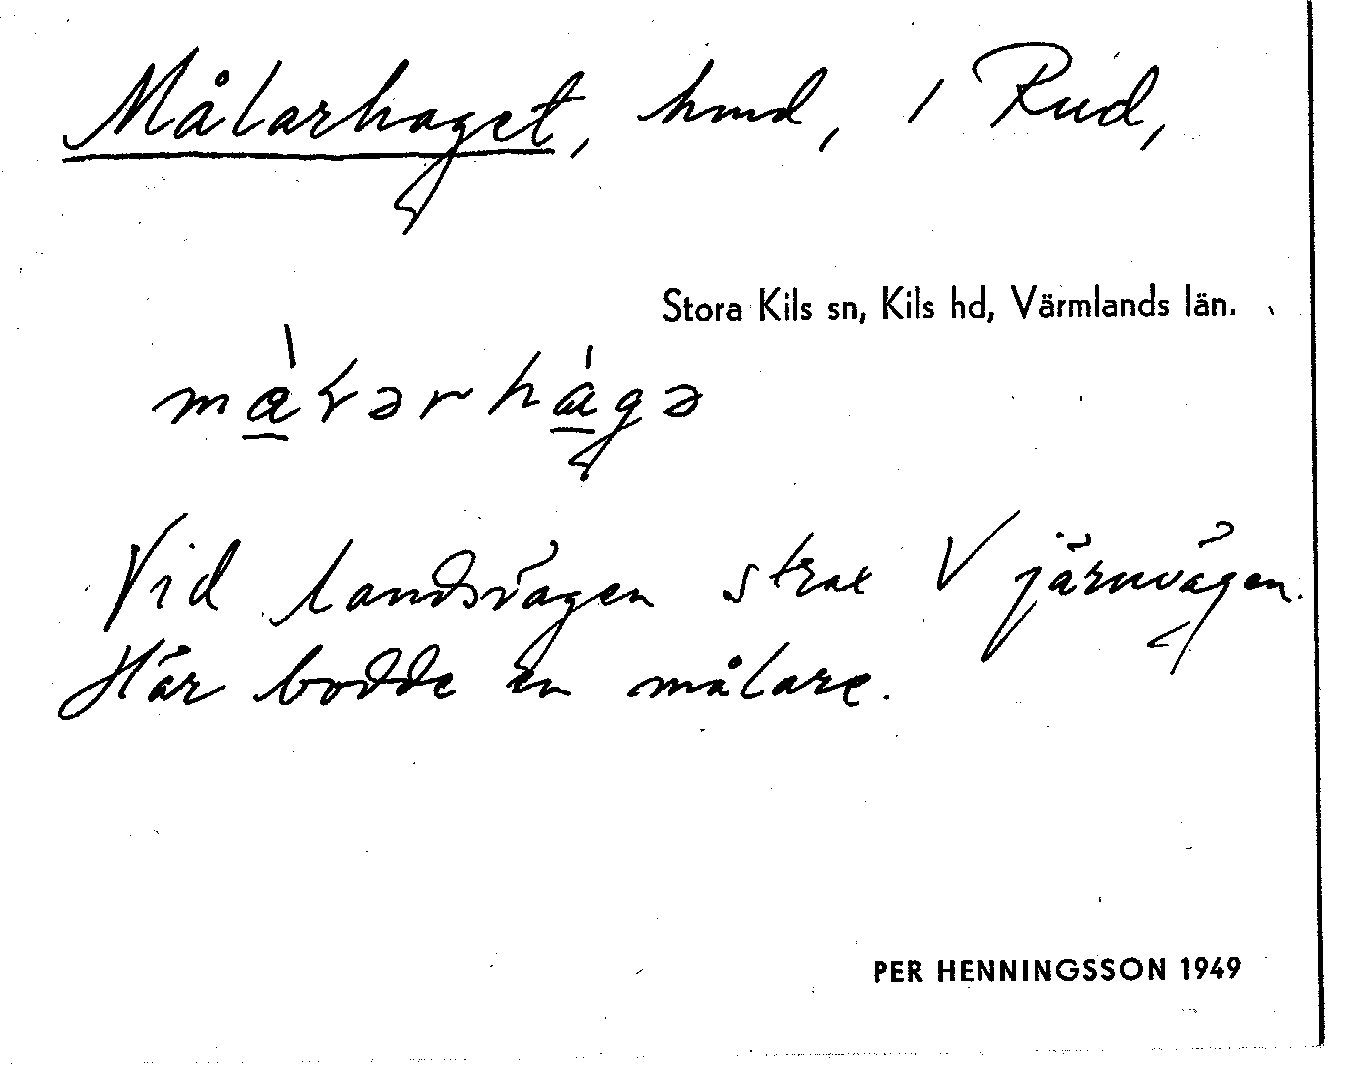 Målarhaget, hmd, i Rud,
Stora Kils sn, Kils hd, Värmlands län.
Vid landsvägen strax V järnvägen.
Här bodde en målare.
PER HENNINGSSON 1949